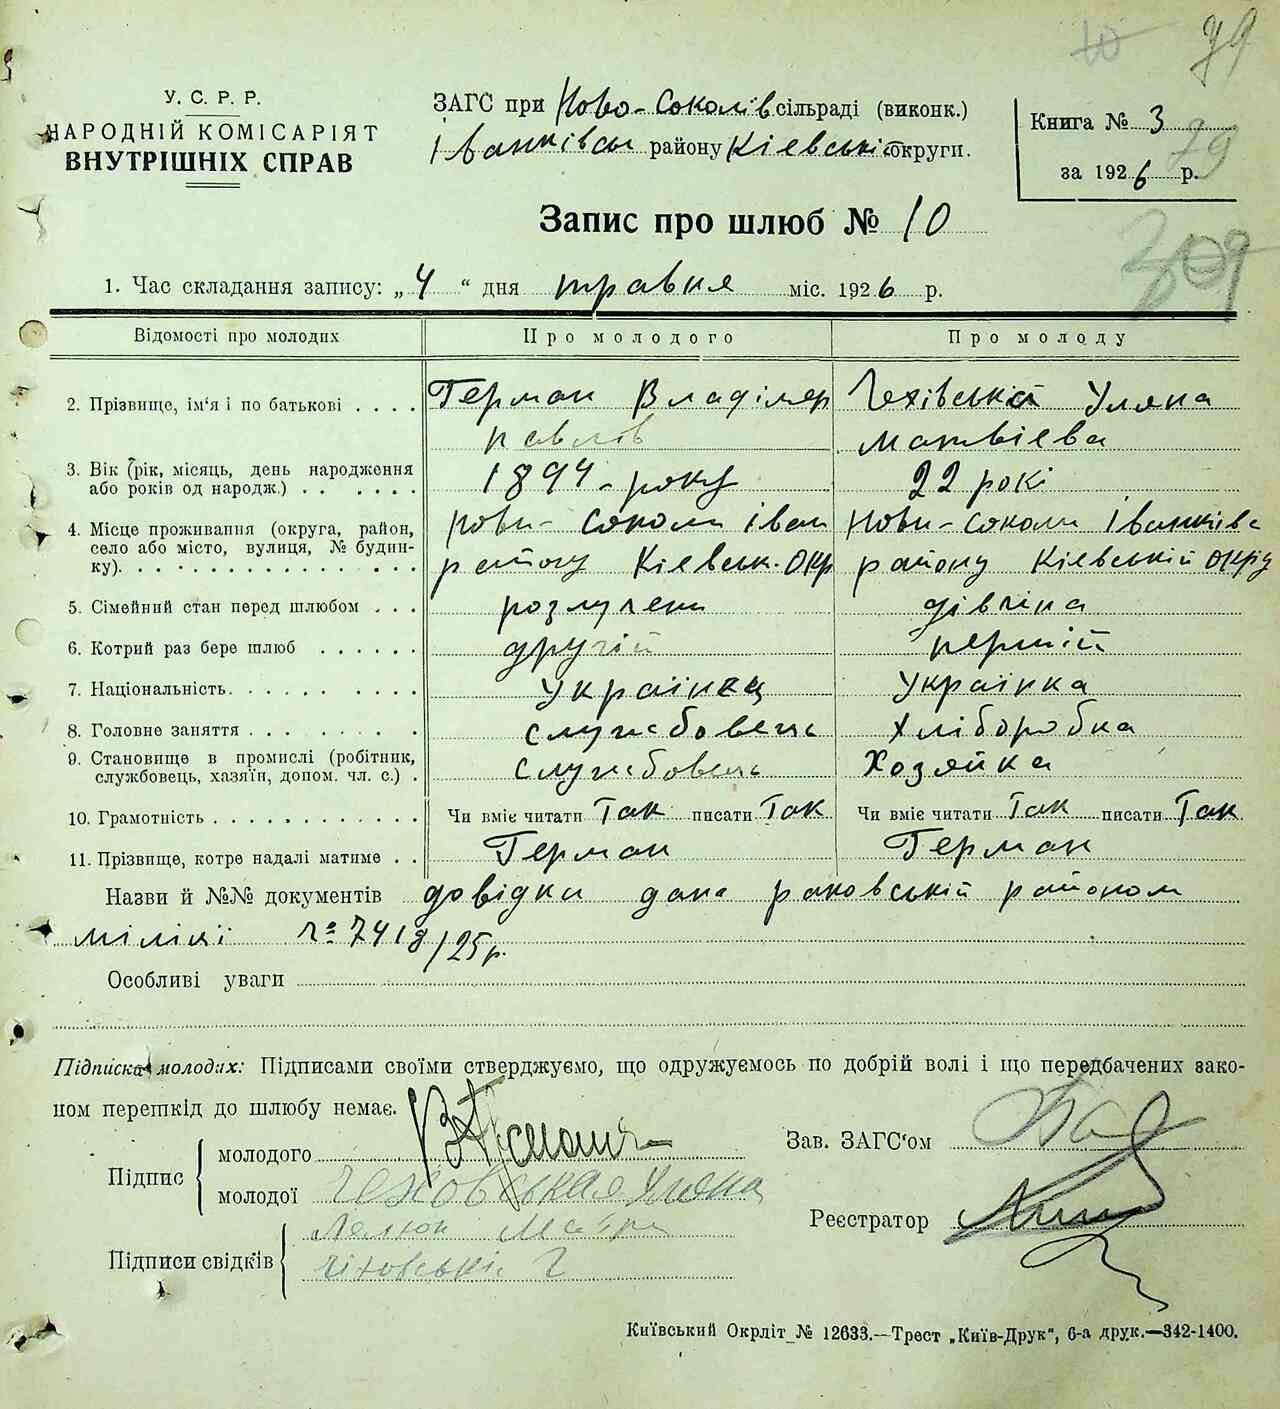 79
У. С. Р. Р.
НАРОДНІЙ КОМІСАРІЯТ
ВНУТРІШНІХ СПРАВ
ЗАГС при Ново-Соколів сільраді (виконк.)
Іванківськ району Кієвськ округи.
Книга № 3
за 1926 р.
79
309
Запис про шлюб № 10
1. Час складання запису: „4“ дня травня міс. 1926 р.
Відомості про молодих Про молодого Про молоду
2. Прізвище, ім'я і по батькові . . . . Герман Владімер Чехівська Уляна
павлів матвієва
3. Вік (рік, місяць, день народження або років од народж.) . . . . . . 1894 - року 22 рокі
4. Місце проживання (округа, район, село або місто, вулиця, № будинку). Нови-Соколи Іван Нови-Соколи Іванківс
району Кієвськ. Окр району Кієвській окру
5. Сімейний стан перед шлюбом . . . розлучени дівчіна
6. Котрий раз бере шлюб . . . . . . другій первій
7. Національність. . . . . . . . . . Українец Українка
8. Головне заняття . . . . . . . . . службовець Хліборобка
9. Становище в промислі (робітник, службовець, хазяїн, допом. чл. с.) . службовець Хозяйка
10. Грамотність . . . . . . . . . . . . Чи вміє читати Так писати Так Чи вміє читати Так писати Так
11. Прізвище, котре надалі матиме . . Герман Герман
Назви й №№ документів довідки дана раковській районом
міліції № 7418/25р.
Особливі уваги
Підписка молодих: Підписами своїми стверджуємо, що одружуємось по добрій волі і що передбачених зако-
ном перешкід до шлюбу немає.
Підпис молодого В Герман
молодої Чеховськая Уляна
Зав. ЗАГС'ом
Реєстратор
Підписи свідків
Чіховські
Київський Окрліт № 12633.—Трест „Київ-Друк“, 6-а друк.—342-1400.